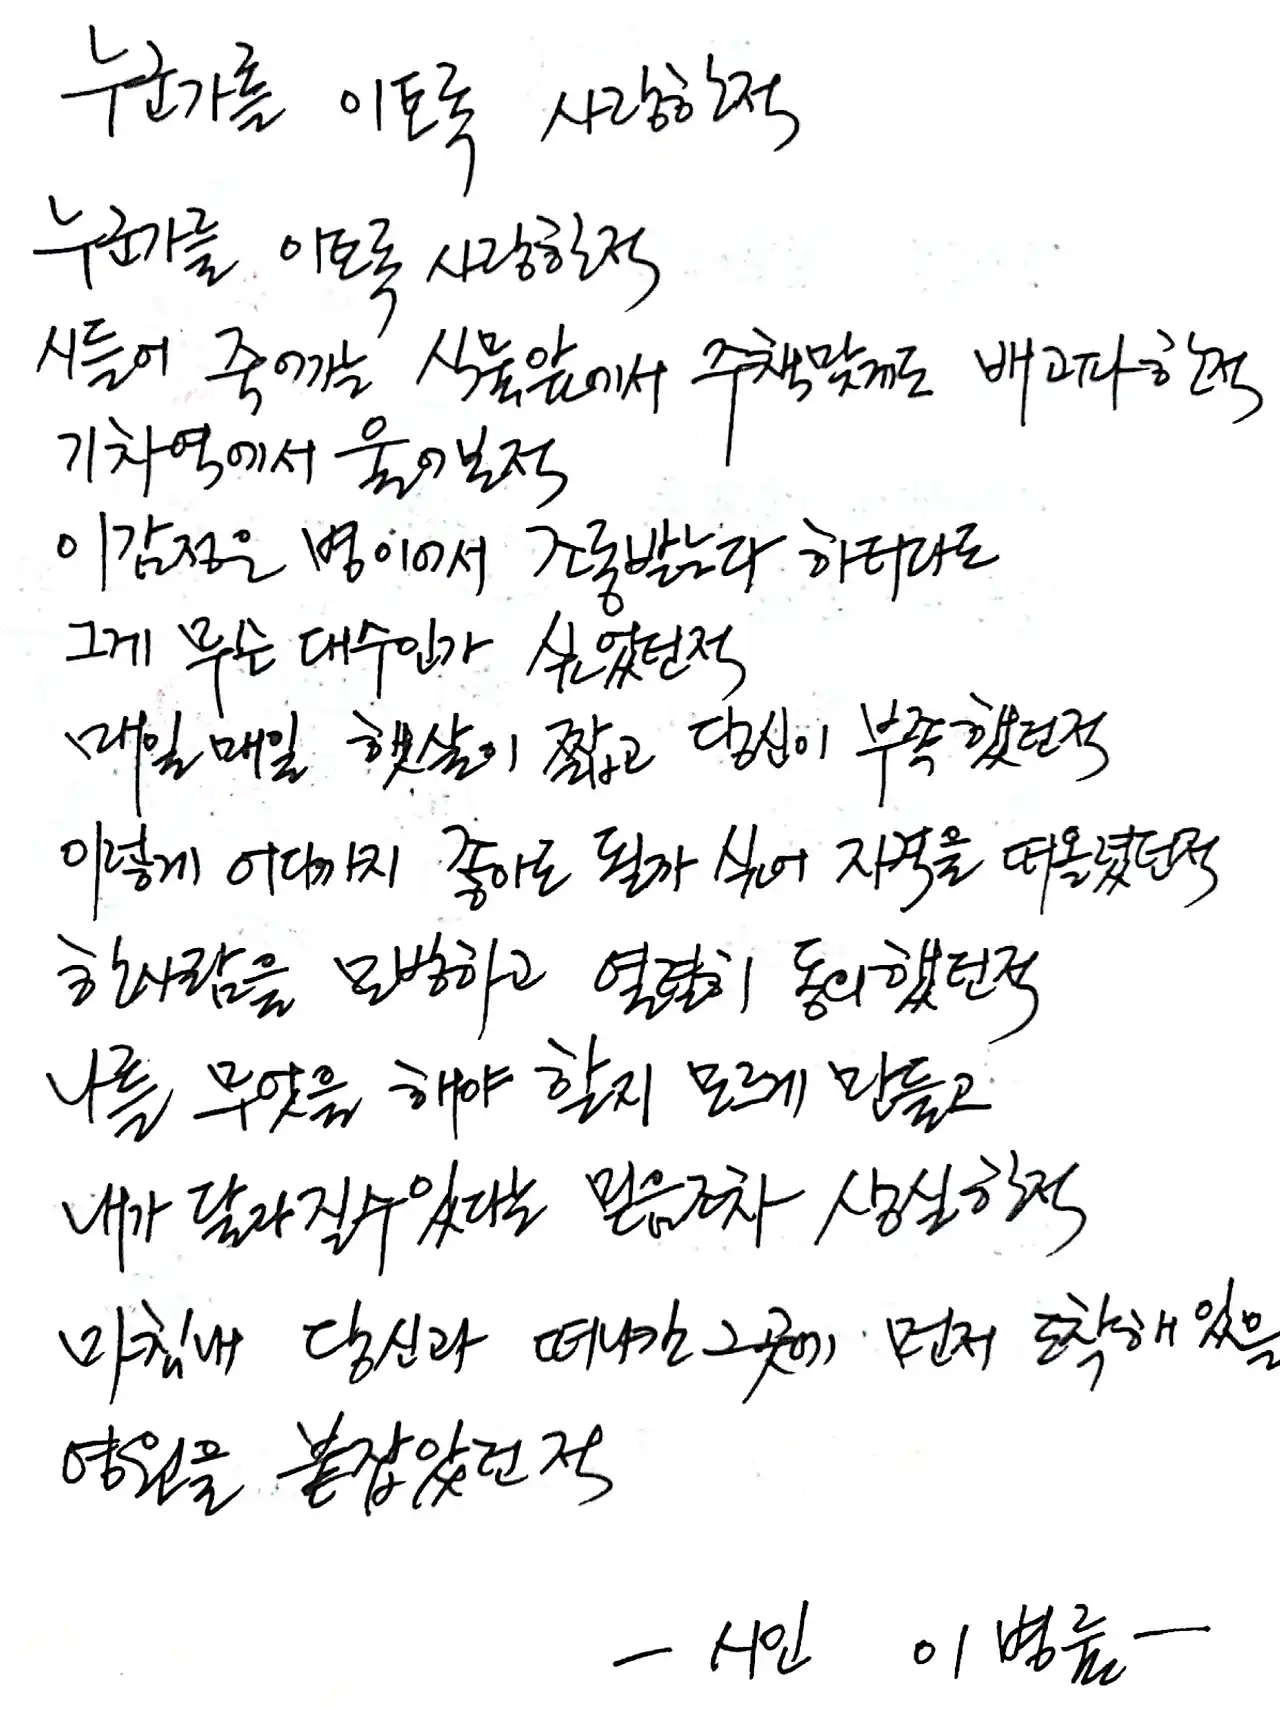 누군가를 이토록 사랑한적
누군가를 이토록 사랑한적
시들어 죽어가는 식물앞에서 주책맞게도 배고파한적
기차역에서 울어본적
이감정은 병이어서 조롱받는다 하더라도
그게 무슨 대수인가 싶었던적
매일매일 햇살이 짧고 당신이 부족했던적
이렇게 어디까지 좋아도 될까 싶어 자격을 떠올렸던적
한사람을 모방하고 열렬히 동의했던적
나를 무엇을 해야 할지 모르게 만들고
내가 달라질수있다는 믿음조차 상실한적
마침내 당신과 떠나간 그곳에 먼저 도착해있을
영원을 붙잡았던적
– 시인 이병률 –